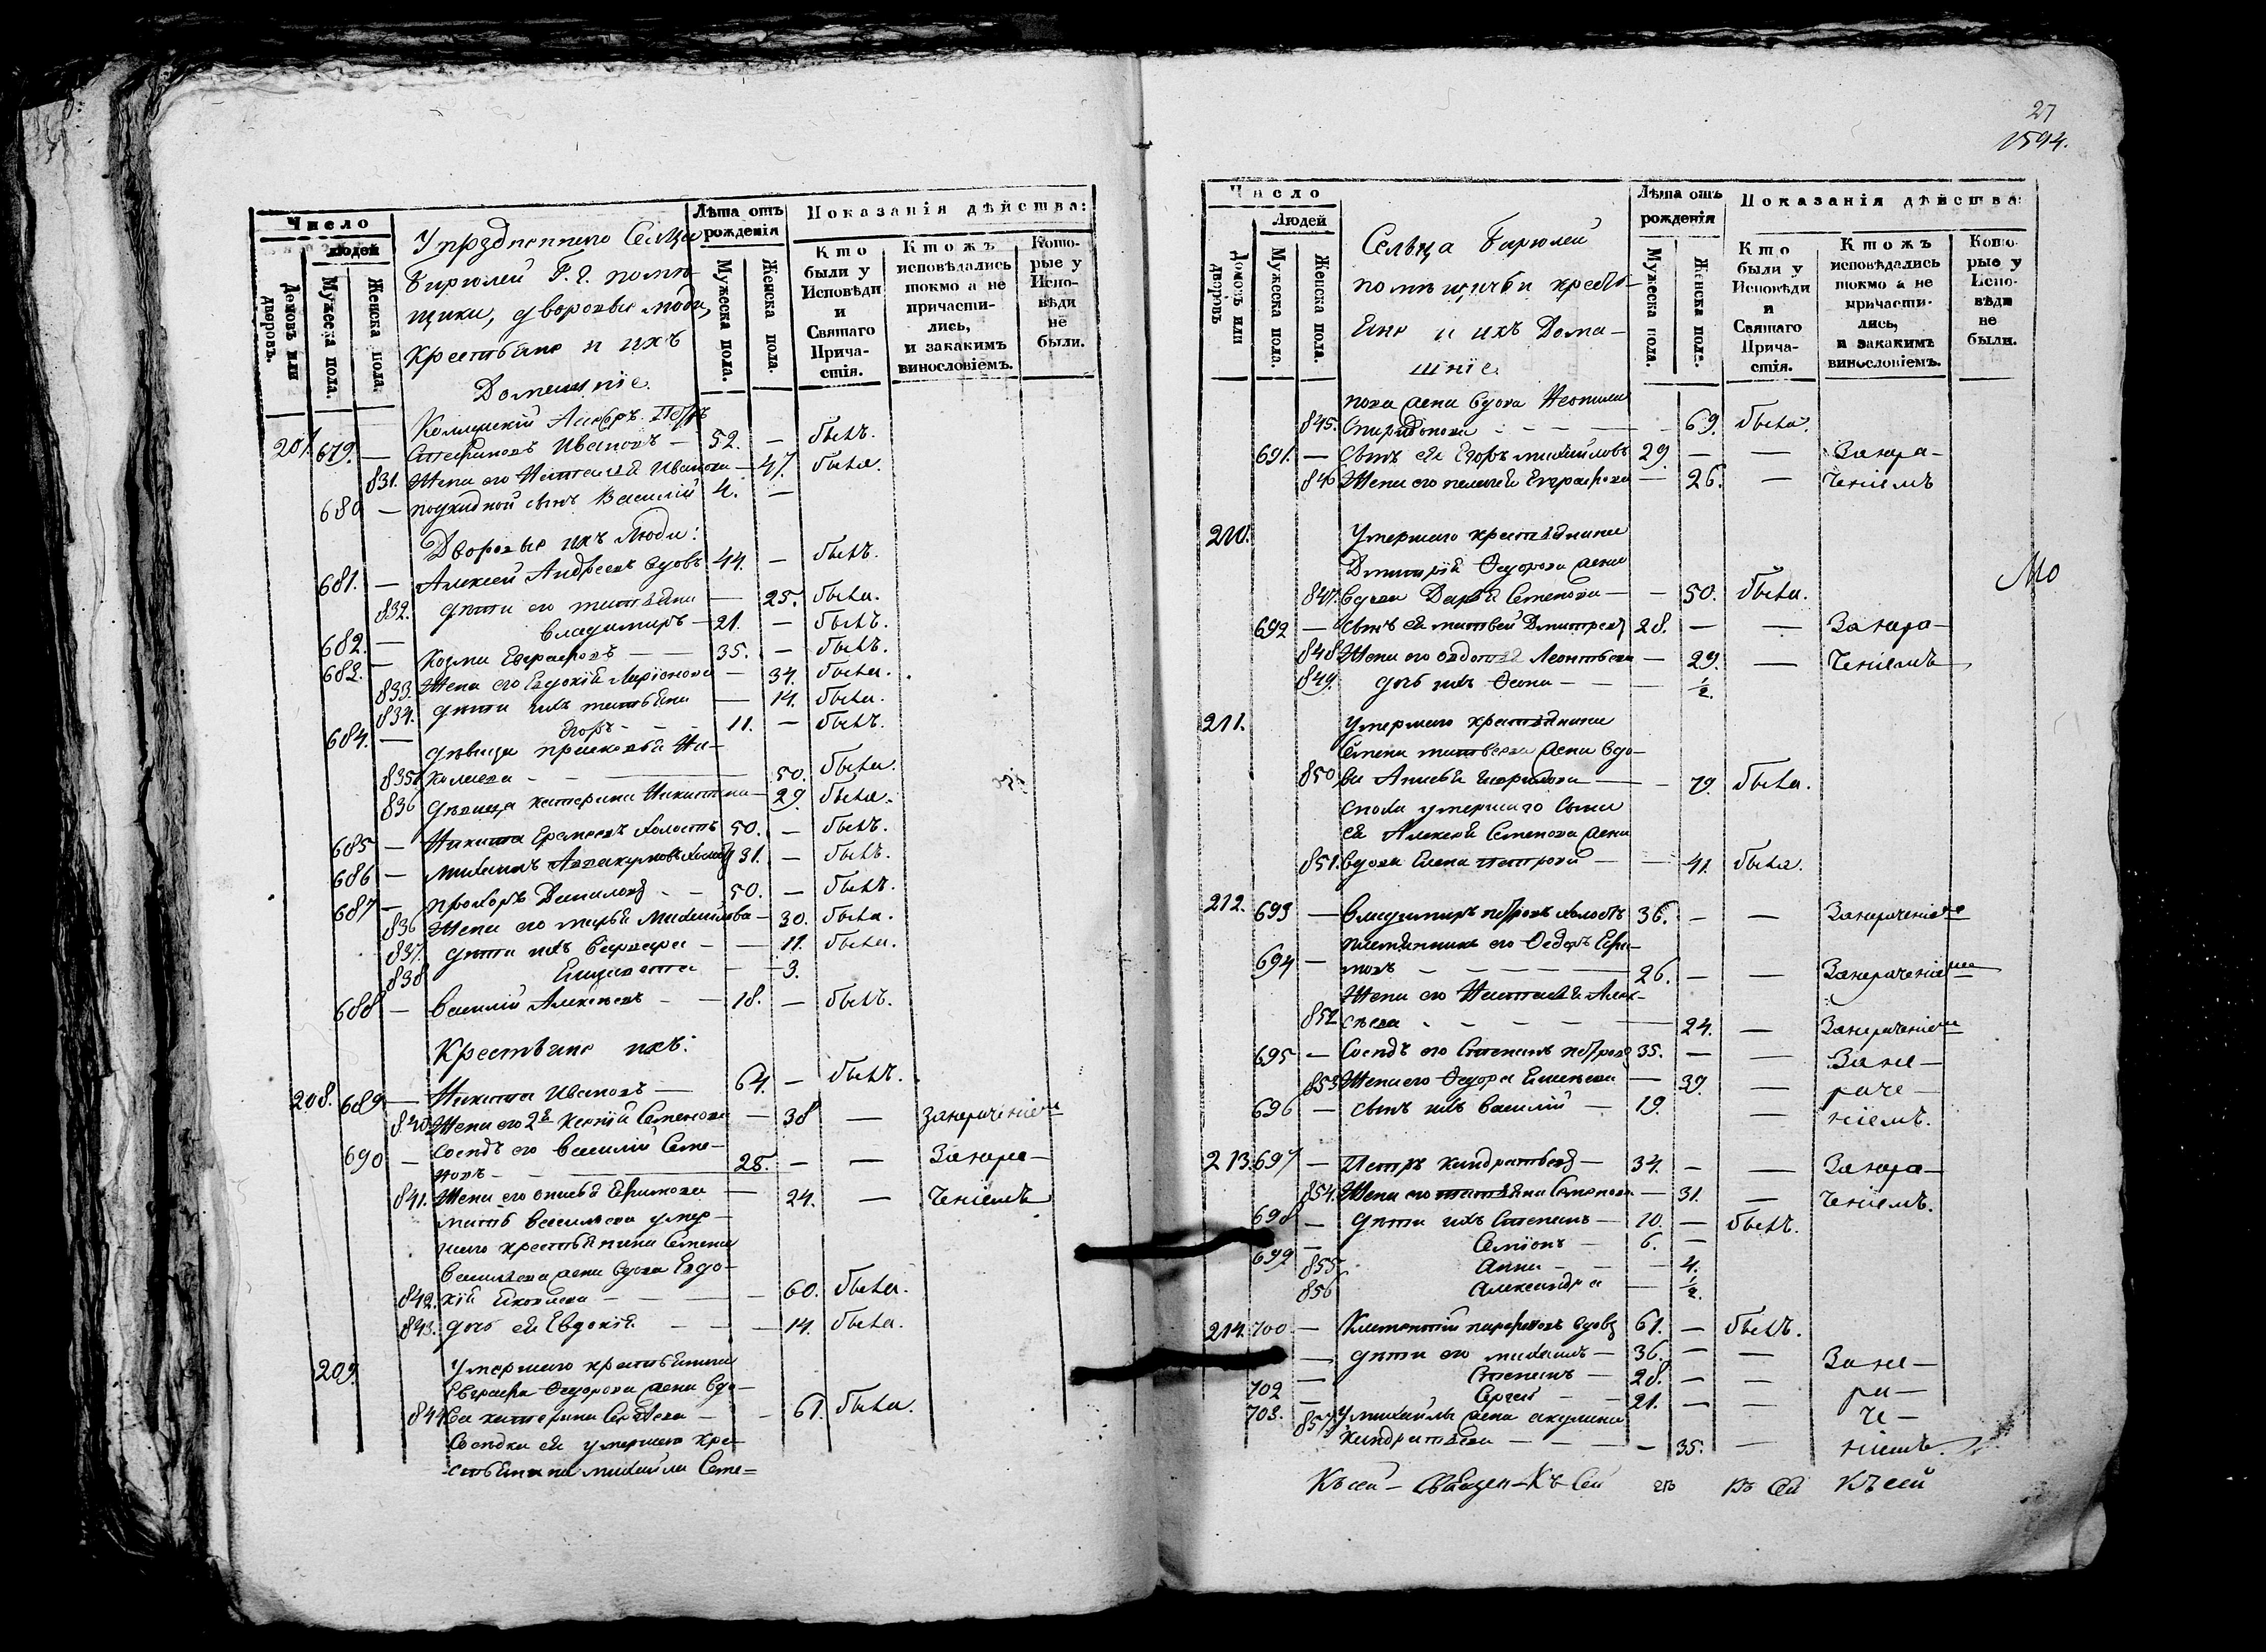 Число
людей
Домовъ или дворовъ.
Мужеска пола.
Женска пола.
Упрздненнаго Сельца
Бирюлей Г. Г. помѣ-
щики, дворовые люди,
Крестьяне и ихъ
Домашніе.
Лѣта отъ рожденія
Мужеска пола.
Женска пола.
Показанія дѣйства:
Кто были у Исповѣди и Святаго Причастія.
Ктожъ исповѣдались токмо а не причастились, и закакимъ винословіемъ.
Которые у Исповѣди не были.
207. 679. — Стефановъ Ивановъ — 52. — былъ.
831. Жена его Наталья Иванова — 47. была.
680 — подкидной сынъ Василій 4. —
Дворовые ихъ Люди:
681. — Алексей Андреевъ вдовъ 44. — былъ.
832. дѣти его татьяна — 25. была.
682. — Владимиръ — 21. — былъ.
683. — Козма Евграфовъ — — 35. — былъ.
833. Жена его Евдокія Ларіонова — 34. была.
834. дѣти ихъ татьяна — 14. была.
684. — Егоръ - - 11. — былъ.
девица прасковья Ни-
835. колаева - — 50. была.
836 дѣвица катерина Никитина — 29. была.
685 — Никита Еремеевъ Холостъ 50. — былъ.
686 — михаилъ Аввакумовъ Холостъ 31. — былъ.
687 — прохоръ Даниловъ - - 50. — былъ.
836 Жена его марья Михайлова — 30. была.
837. дѣти ихъ варвара - — 11. была.
838 Елизавета — — 3.
688 — Василій Алексѣевъ - — 18. — былъ.
Крестьяне ихъ:
208. 689. — Никита Ивановъ — 64. — былъ.
840. Жена его 2я Ксенія Семенова — 38 — занераченіемъ
690 — Соседъ его Василій Семе-
новъ - - — 25. — — Занера-
841. Жена его анисья Ефимова — 24. — ченіемъ
мать Васильева умер-
шаго крестьянина Семена
Васильева жена вдова Евдо-
842. кія Яковлева — — 60. была.
843. дочь ея Евдокія — — 14. была.
209. Умершаго крестьянина
Евграфа Федорова жена вдо-
844. ва катерина Сергѣева — - 61. была.
Соседка ея умершаго кре-
стьянина михайла Семе=
27
1594.
Число
Людей
Домовъ или дворовъ
Мужеска пола.
Женска пола.
Сельца Бирюлей
помѣщичьи кресть-
яне и ихъ Дома-
шніе.
Лѣта отъ рожденія
Мужеска пола.
Женска пола.
Показанія дѣйства:
Кто были у Исповѣди и Святаго Причастія.
Ктожъ исповѣдались токмо а не причастились, и закакимъ винословіемъ.
Которые у Исповѣди не были.
нова жена вдова Неонила
845. Спиридонова - - — - 69. была.
691. — сынъ ея Егоръ михайловъ 29. — — Занера-
846 Жена его пелагея Евграфова — 26. — ченіемъ
210. Умершаго крестьянина
Дмитрія Федорова жена
847. вдова Дарья Семенова — - 50. была.
692 — сынъ ея матвей Дмитреевъ 28. — — Занера-
848 Жена его авдотья Леонтьева — 29. — ченіемъ
849. дочь ихъ Фекла - - — 1/2.
Мо
211. Умершаго крестьянина
Семена матвеева жена вдо-
850 ва Анисья — - 79. была.
сноха умершаго сына
ея Алексея Семенова жена
851. вдова Елена петрова — — 41. была.
212. 693 — Владимиръ петровъ холостъ 36. - — Занераченіемъ
племянникъ его Федоръ Ефи-
694 — мовъ — - — 26. — — Занераченіемъ
Жена его Наталья Алек-
852 сѣева - - - — 24. — Занераченіемъ
695 — Соседъ его Степанъ петровъ 35. — — Зане-
853 Жена его Федора Емельева — 39. — раче-
696 — сынъ ихъ Василій — 19. — ніемъ.
213. 697 — Петръ кондратьевъ — 34. — — Занера-
854. Жена его татьяна Семенова — 31. — ченіемъ.
698 — дѣти ихъ Степанъ — 10. — былъ.
699 — Семіонъ — 6. —
855. Анна - - — 4.
856 Александра — — 1/2.
214. 700. — Климентій парфеновъ вдовъ 61. — былъ.
— дѣти его михаилъ — 36. — — Зане-
702 — Степанъ — 28. — — ра-
703. — Сергей - - 21. — — че-
857. У михайлы жена акулина
кондратьева — - — - 35. — ніемъ.
Къ сей — Священ — Къ Сей Къ Сей Къ сей